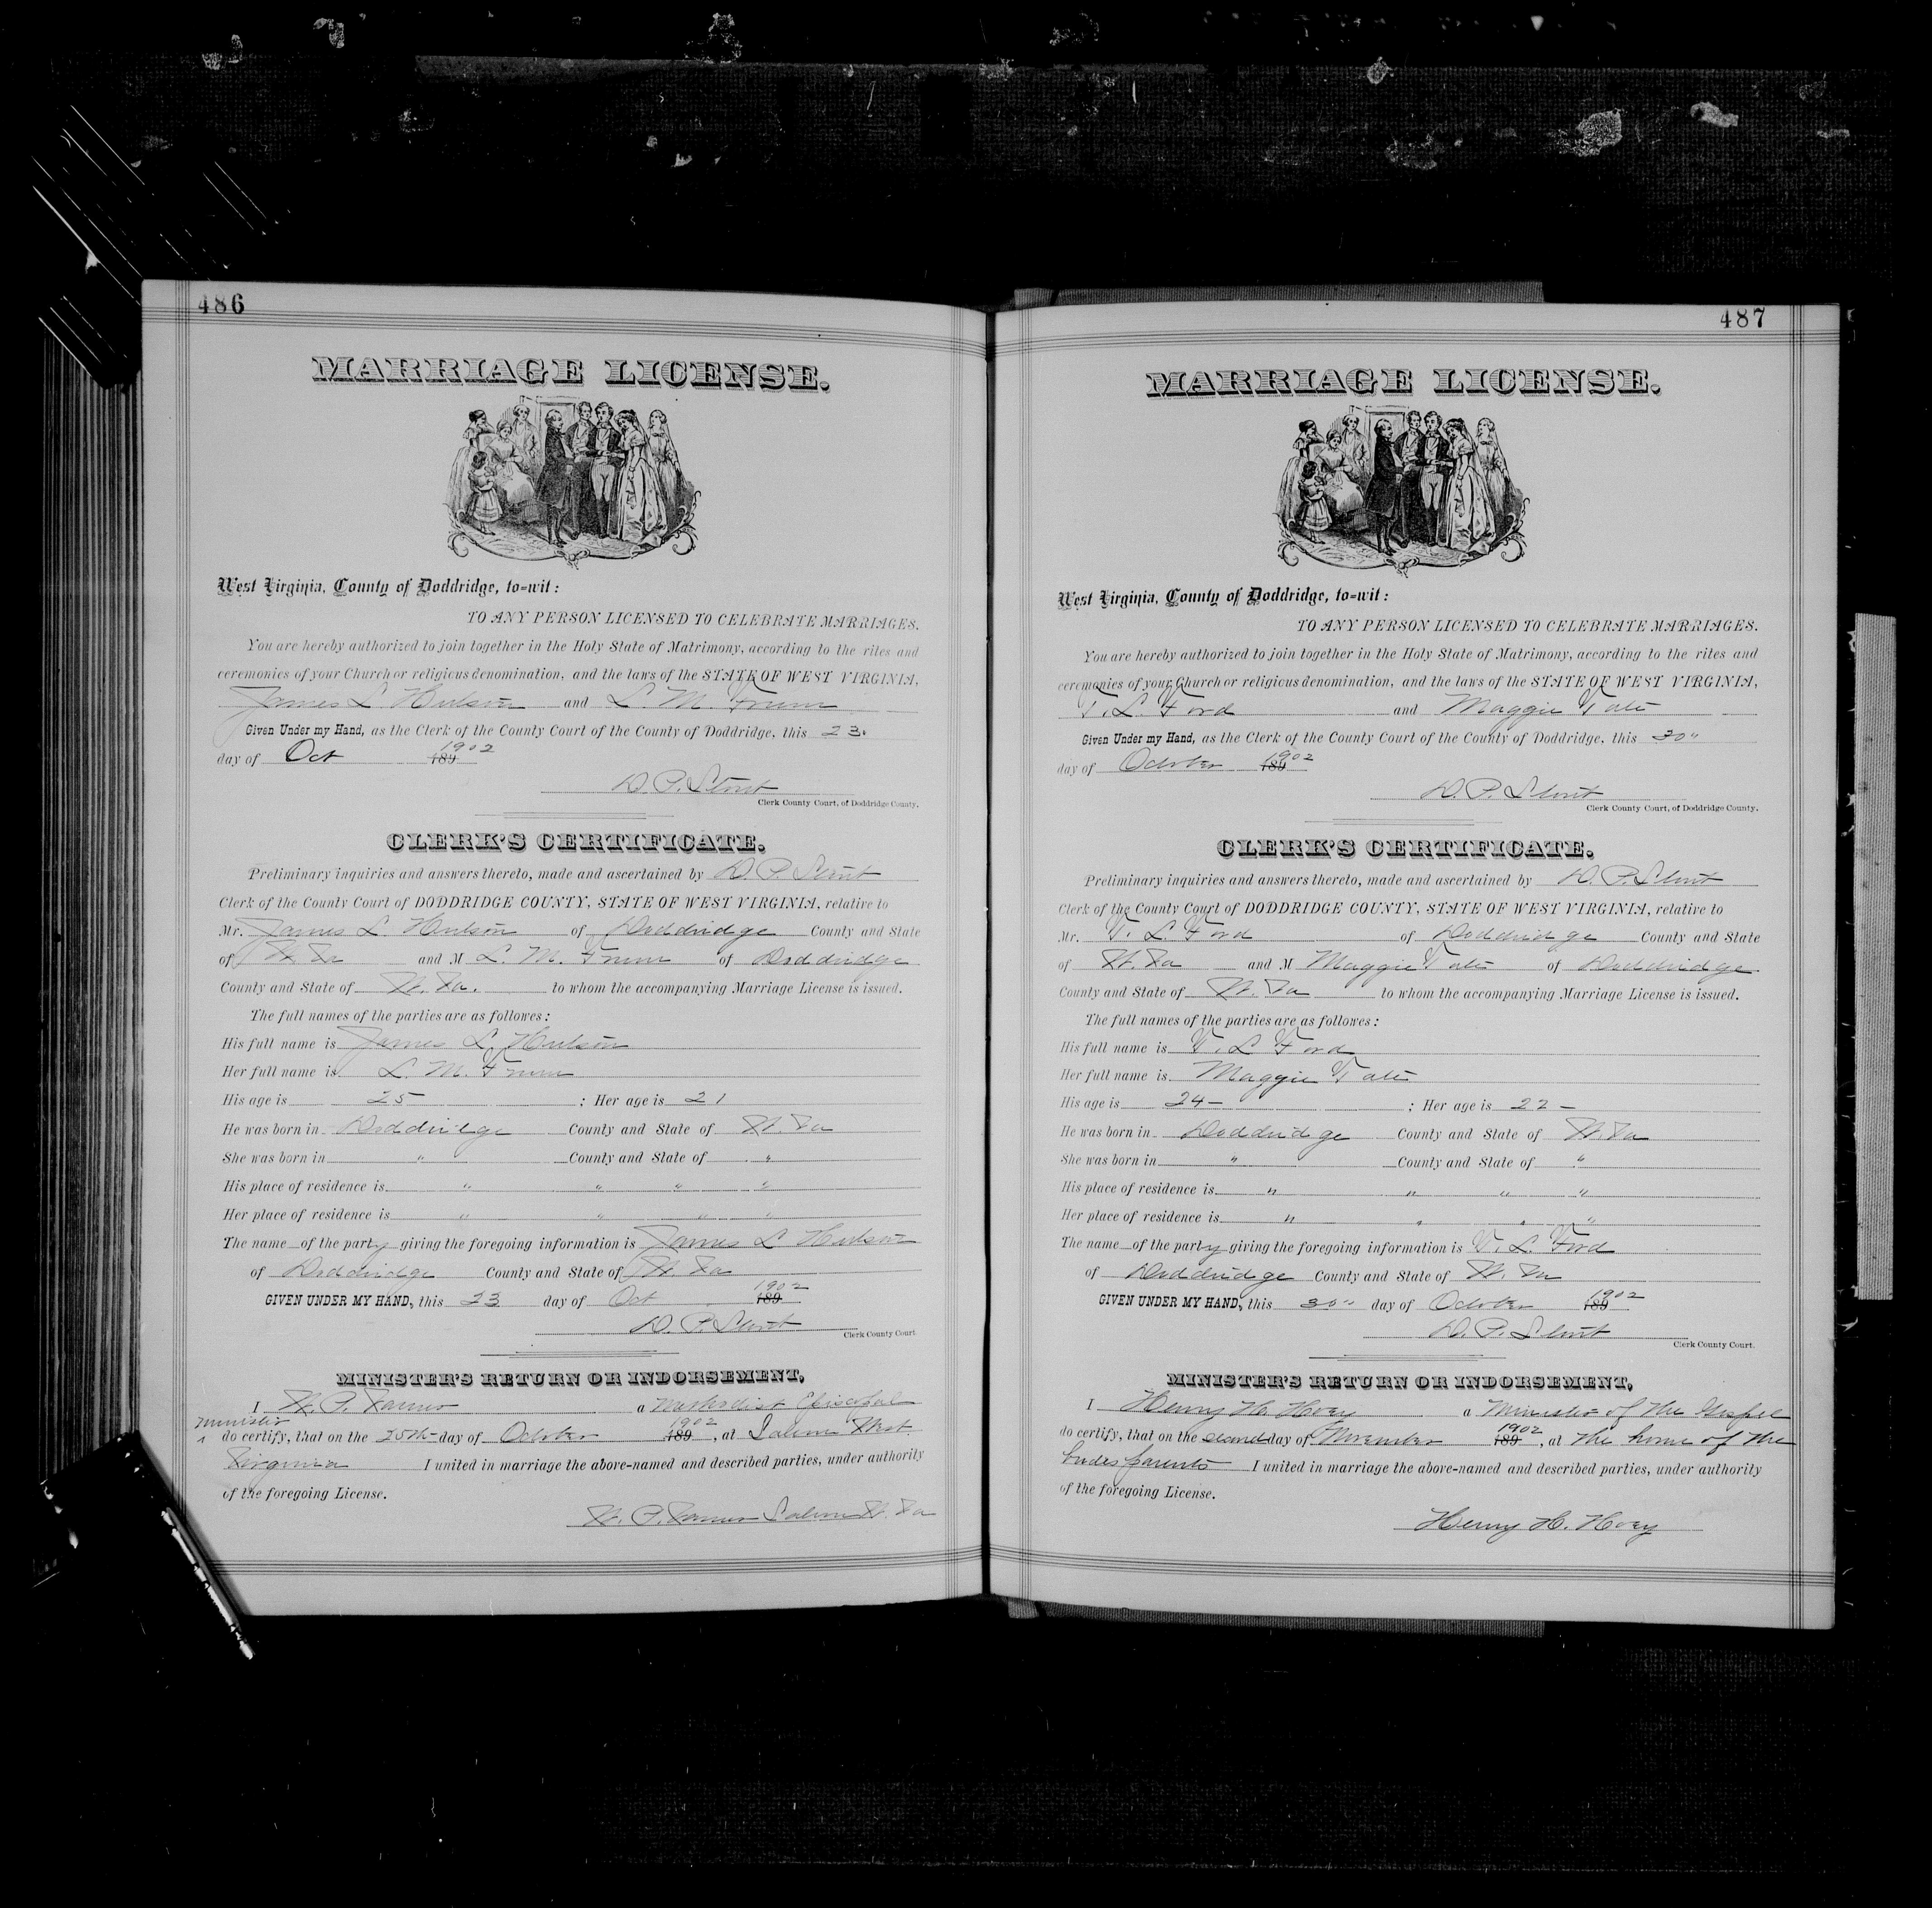 486
MARRIAGE LICENSE.
West Virginia, County of Doddridge, to=wit:
TO ANY PERSON LICENSED TO CELEBRATE MARRIAGES.
You are hereby authorized to join together in the Holy State of Matrimony, according to the rites and
ceremonies of your Church or religious denomination, and the laws of the STATE OF WEST VIRGINIA,
James L. Hutson and L. M. Frum
Given Under my Hand, as the Clerk of the County Court of the County of Doddridge, this 23.
day of Oct 189 1902
D. P. Stout
Clerk County Court, of Doddridge County.
CLERK'S CERTIFICATE.
Preliminary inquiries and answers thereto, made and ascertained by D. P. Stout
Clerk of the County Court of DODDRIDGE COUNTY, STATE OF WEST VIRGINIA, relative to
Mr. James L. Hutson of Doddridge County and State
of W. Va and M L. M. Frum of Doddridge
County and State of W. Va. to whom the accompanying Marriage License is issued.
The full names of the parties are as followes:
His full name is James L. Hutson
Her full name is L. M. Frum
His age is 25 ; Her age is 21
He was born in Doddridge County and State of W. Va
She was born in " County and State of "
His place of residence is " " " "
Her place of residence is " " " "
The name of the party giving the foregoing information is James L Hutson
of Doddridge County and State of W. Va
GIVEN UNDER MY HAND, this 23 day of Oct 189 1902
D. P. Stout
Clerk County Court
MINISTER'S RETURN OR INDORSEMENT,
I W. P. a Methodist Episcopal
minister
do certify, that on the 25th day of October 189 1902, at Salem West
Virginia I united in marriage the above-named and described parties, under authority
of the foregoing License.
W. P. Salem W. Va
487
MARRIAGE LICENSE.
West Virginia, County of Doddridge, to=wit:
TO ANY PERSON LICENSED TO CELEBRATE MARRIAGES.
You are hereby authorized to join together in the Holy State of Matrimony, according to the rites and
ceremonies of your Church or religious denomination, and the laws of the STATE OF WEST VIRGINIA,
T. L. Ford and Maggie Tate
Given Under my Hand, as the Clerk of the County Court of the County of Doddridge, this 30"
day of October 189 1902
D. P. Stout
Clerk County Court, of Doddridge County.
CLERK'S CERTIFICATE.
Preliminary inquiries and answers thereto, made and ascertained by D. P. Stout
Clerk of the County Court of DODDRIDGE COUNTY, STATE OF WEST VIRGINIA, relative to
Mr. T. L. Ford of Doddridge County and State
of W. Va and M Maggie Tate of Doddridge
County and State of W. Va to whom the accompanying Marriage License is issued.
The full names of the parties are as followes:
His full name is T. L Ford
Her full name is Maggie Tate
His age is 24 — ; Her age is 22 —
He was born in Doddridge County and State of W. Va
She was born in " County and State of "
His place of residence is " " " "
Her place of residence is " " " "
The name of the party giving the foregoing information is T. L. Ford
of Doddridge County and State of W. Va
GIVEN UNDER MY HAND, this 30" day of October 189 1902
D. P. Stout
Clerk County Court.
MINISTER'S RETURN OR INDORSEMENT,
I Henry H. Hoey a Minister of the Gospel
do certify, that on the second day of November 189 1902, at the home of the
brides parents I united in marriage the above-named and described parties, under authority
of the foregoing License.
Henry H. Hoey